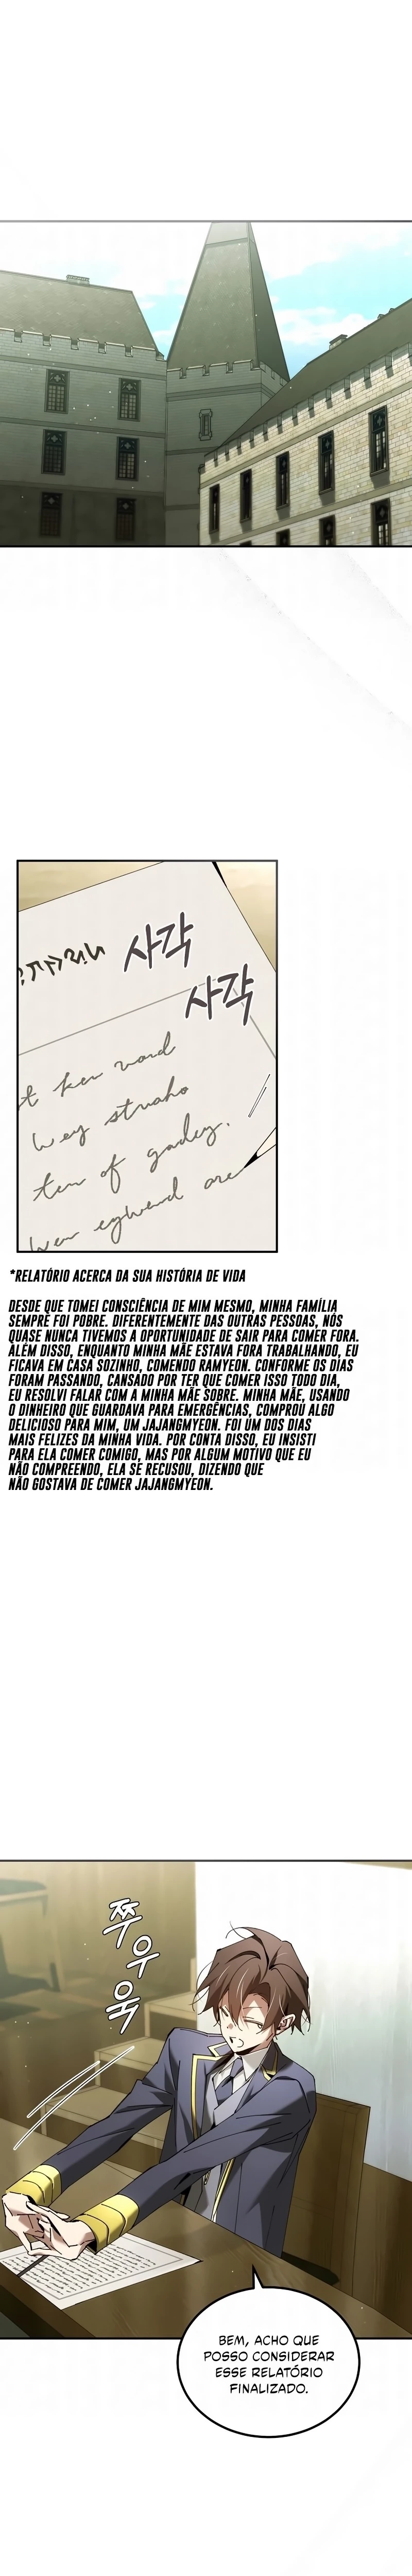 사각
사각
ten of
are
*RELATÓRIO ACERCA DA SUA HISTÓRIA DE VIDA
DESDE QUE TOMEI CONSCIÊNCIA DE MIM MESMO, MINHA FAMÍLIA
SEMPRE FOI POBRE. DIFERENTEMENTE DAS OUTRAS PESSOAS, NÓS
QUASE NUNCA TIVEMOS A OPORTUNIDADE DE SAIR PARA COMER FORA.
ALÉM DISSO, ENQUANTO MINHA MÃE ESTAVA FORA TRABALHANDO, EU
FICAVA EM CASA SOZINHO, COMENDO RAMYEON. CONFORME OS DIAS
FORAM PASSANDO, CANSADO POR TER QUE COMER ISSO TODO DIA,
EU RESOLVI FALAR COM A MINHA MÃE SOBRE. MINHA MÃE, USANDO
O DINHEIRO QUE GUARDAVA PARA EMERGÊNCIAS, COMPROU ALGO
DELICIOSO PARA MIM, UM JAJANGMYEON. FOI UM DOS DIAS
MAIS FELIZES DA MINHA VIDA. POR CONTA DISSO, EU INSISTI
PARA ELA COMER COMIGO, MAS POR ALGUM MOTIVO QUE EU
NÃO COMPREENDO, ELA SE RECUSOU, DIZENDO QUE
NÃO GOSTAVA DE COMER JAJANGMYEON.
쭈우욱
BEM, ACHO QUE
POSSO CONSIDERAR
ESSE RELATÓRIO
FINALIZADO.